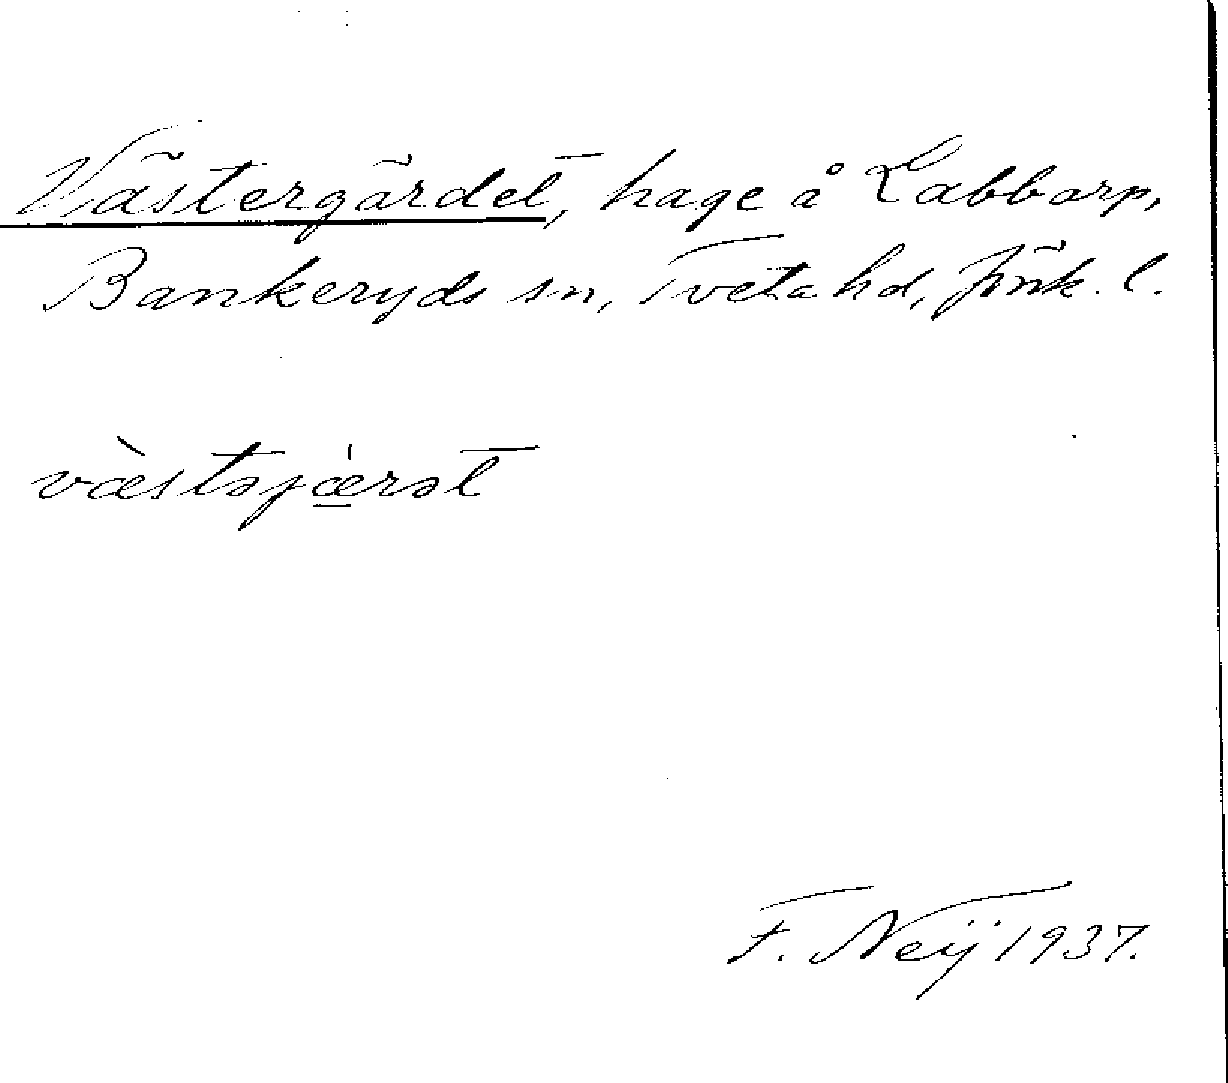 Västergärdet, hage å Labbarp,
Bankeryds sn, Tveta hd, Jönk. l.
væ̀stəjæ̲̍rət
F. Neij 1937.